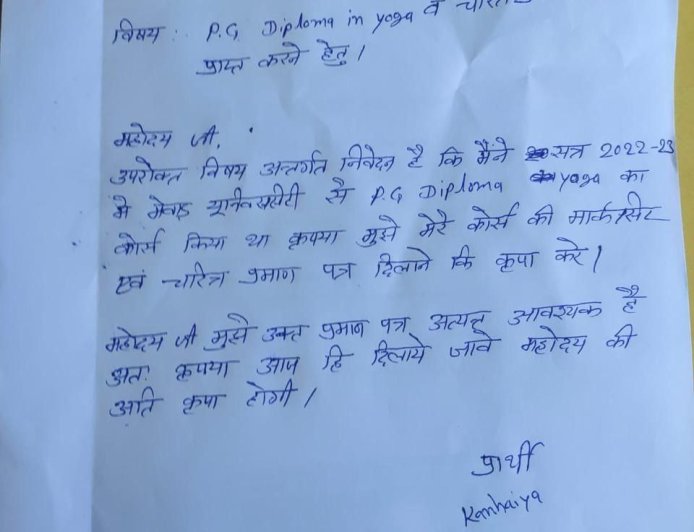 विषय : P.G Diploma in yoga व
प्राप्त करने हेतु ।
महोदय जी,
उपरोक्त विषय अन्तर्गत निवेदन है कि मैंने सत्र 2022-23
मे मेवाड़ यूनिवर्सिटी से P.G Diploma yoga का
कोर्स किया था कृपया मुझे मेरे कोर्स की मार्कसिट
एवं चारित्र प्रमाण पत्र दिलाने कि कृपा करे ।
महोदय जी मुझे उक्त प्रमाण पत्र अत्यन्त आवश्यक है
अतः कृपया आज हि दिलाये जावे महोदय की
अति कृपा होगी ।
प्रार्थी
Kanhaiya